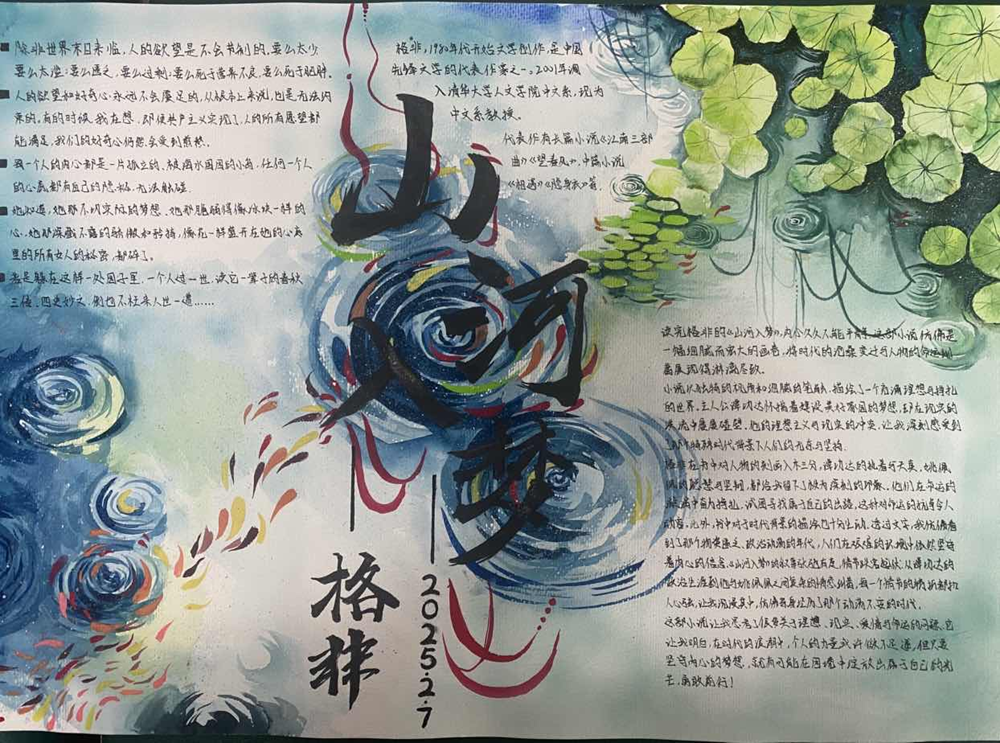 除非世界末日来临,人的欲望是不会节制的,要么太少
要么太滥;要么匮乏,要么过剩;要么死于营养不良,要么死于脑肿。
人的欲望和好奇心永远不会餍足的,从根本上来说,也是无法约
束的。有的时候,我在想,即使共产主义实现了,人的所有愿望都
能满足,我们的好奇心仍然会受到煎熬。
每一个人的内心都是一片孤立的、被海水围困的小岛,任何一个人
的心底都有自己的隐私,无法触碰。
他知道,她那不切实际的梦想、她那脆弱得像冰块一样的
心、她那深藏不露的骄傲和矜持,像花一样盛开在她的心房
里的所有女人的秘密,都碎了。
若是躲在这样一处园子里,一个人过一世,读它一辈子的春秋
三传、四史妙文,倒也不枉来人世一遭……
格非,1980年代开始文学创作,是中国
先锋文学的代表作家之一。2001年调
入清华大学人文学院中文系,现为
中文系教授。
代表作有长篇小说《江南三部
曲》《望春风》,中篇小说
《相遇》《隐身衣》等。
山
河
入
梦
格非
2025.2.7
读完格非的《山河入梦》,内心久久不能平静。这部小说仿佛是
一幅细腻而宏大的画卷,将时代的沧桑变迁与人物的命运刻
画展现得淋漓尽致。
小说以独特的视角和细腻的笔触,描绘了一个充满理想与挣扎
的世界。主人公谭功达怀揣着建设美好家园的梦想,却在现实的
洪流中屡屡碰壁。他的理想主义与现实的冲突,让我深刻感受到
了那个特殊时代背景下人们的无奈与坚持。
格非在书中对人物的刻画入木三分,谭功达的执着与天真、姚佩
佩的聪慧与坚韧,都给我留下了极为深刻的印象。他们在命运的
中有力挣扎,试图寻找属于自己的出路,这种对命运的抗争令人
动容。此外,书中对于时代背景的描绘也十分生动。透过文字,我仿佛看
到了那个物资匮乏、政治动荡的年代,人们在艰难的环境中依然坚守
着内心的信念。《山河入梦》的叙事
政治生涯到他与姚佩佩之间复杂的情感纠葛,每一个情节的转折都扣
人心弦,让我沉浸其中,仿佛亲身经历了那个动荡不安的时代。
这部小说,让我思考了很多关于理想、现实、爱情与命运的问题。它
让我明白,在时代的浪潮中,个人的力量或许微不足道,但只要
坚守内心的梦想,就有可能在困境中绽放出属于自己的光
芒,勇敢前行!